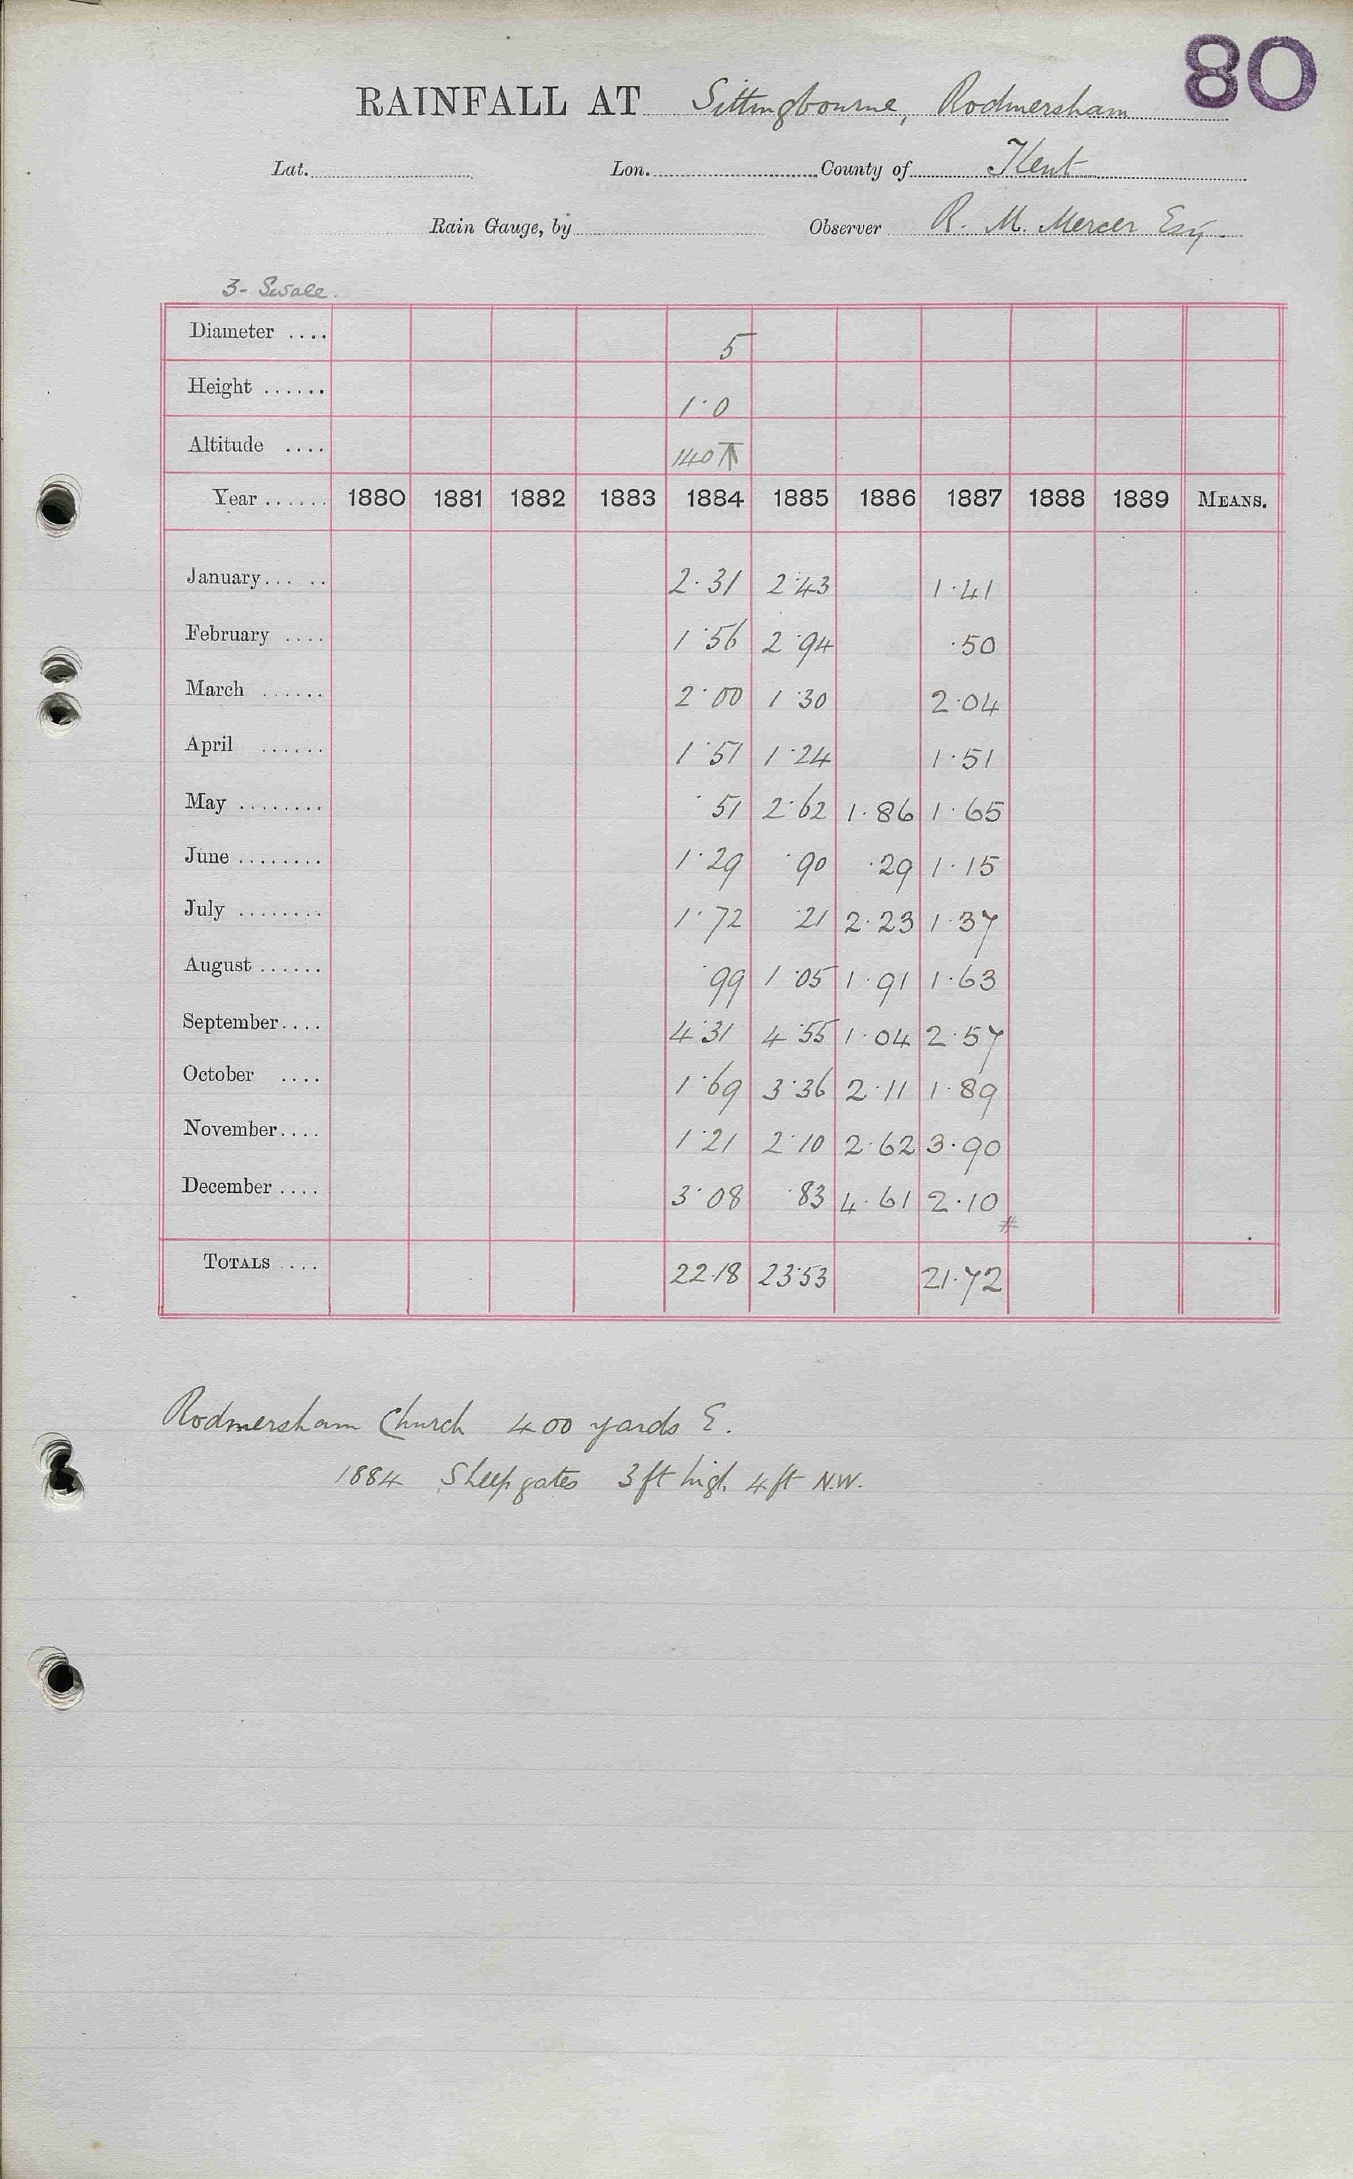 80
RAINFALL AT Sittingbourne, Rodmersham
Lat. Lon. County of Kent
Rain Gauge, by Observer R. M. Mercer Esq.
3- Swale.
Diameter .... 5
Height ...... 1·0
Altitude .... 140
Year ...... 1880 1881 1882 1883 1884 1885 1886 1887 1888 1889 MEANS.
January... .. 2·31 2·43 1·41
February .... 1·56 2·94 ·50
March ...... 2·00 1·30 2·04
April ...... 1·51 1·24 1·51
May ........ ·51 2·62 1·86 1·65
June ........ 1·29 ·90 ·29 1·15
July ........ 1·72 ·21 2·23 1·37
August ...... ·99 1·05 1·91 1·63
September.... 4·31 4·55 1·04 2·57
October .... 1·69 3·36 2·11 1·89
November.... 1·21 2·10 2·62 3·90
December .... 3·08 ·83 4·61 2·10
#
TOTALS .... 22·18 23·53 21·72
Rodmersham Church 400 yards E.
1884 Sheep gates 3 ft high 4 ft N.W.